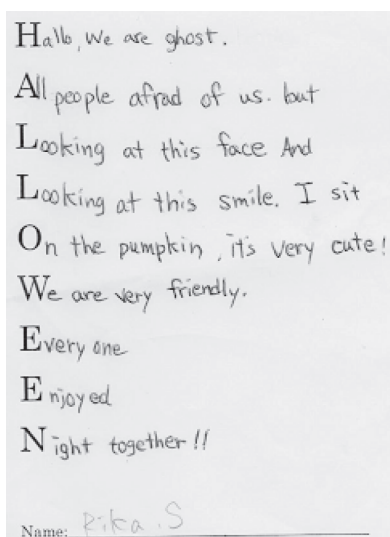 Hallo, we are ghost.
All people afrad of us. but
Looking at this face And
Looking at this smile. I sit
On the pumpkin, it's very cute!
We are very friendly.
Every one
Enjoyed
Night together!!
Name: Rika.S